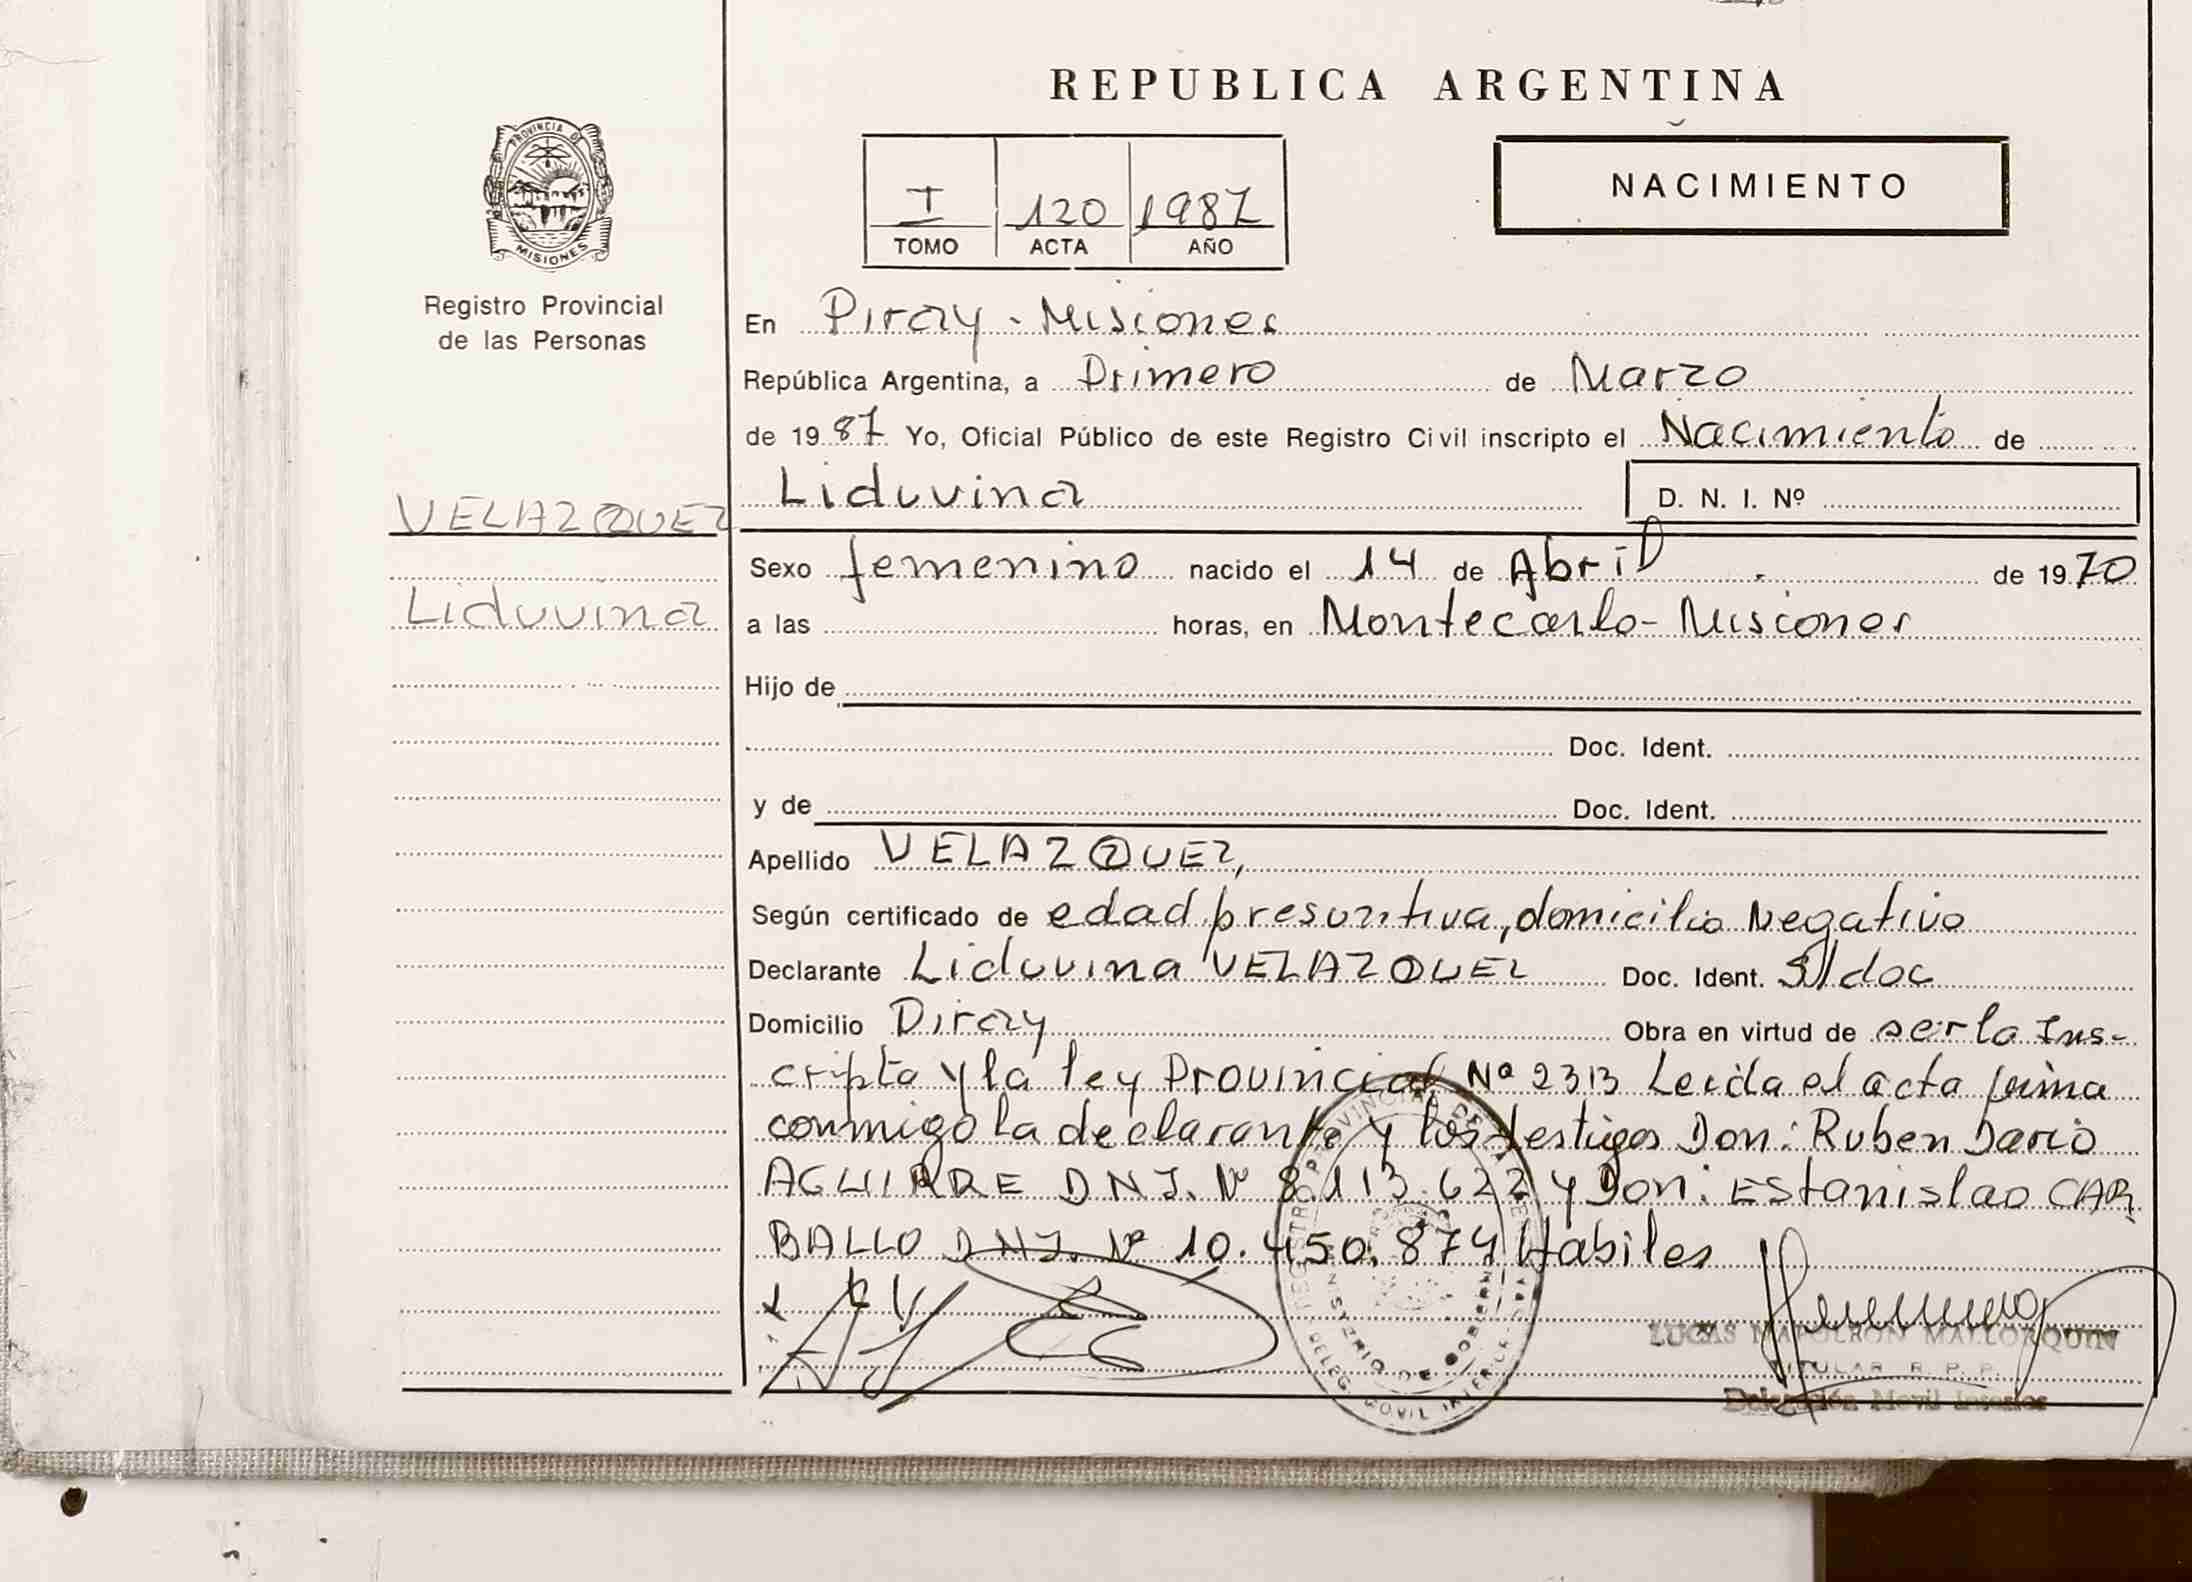 REPUBLICA ARGENTINA
PROVINCIA DE
MISIONES
Registro Provincial
de las Personas
I 120 1987
TOMO ACTA AÑO
NACIMIENTO
En Piray - Misiones
República Argentina, a Primero de Marzo
de 1987 Yo, Oficial Público de este Registro Civil inscripto el Nacimiento de
Liduvina D. N. I. Nº
VELAZQUEZ
Liduvina
Sexo femenino nacido el 14 de Abril de 1970
a las horas, en Montecarlo - Misiones
Hijo de
Doc. Ident.
y de Doc. Ident.
Apellido VELAZQUEZ,
Según certificado de edad presuntiva, domicilio Negativo
Declarante Liduvina VELAZQUEZ Doc. Ident. S/doc
Domicilio Piray Obra en virtud de ser la Ins-
cripta y la ley Provincial Nº 2313 Leida el acta firma
conmigo la declarante y los testigos Don: Ruben Dario
AGUIRRE DNI. Nº 8.113.622 y Don: Estanislao CAR
BALLO DNI. Nº 10.450.874 Habiles
LUCAS NAPOLEON MALLORQUIN
TITULAR R. P. P.
Delegación Movil Interior